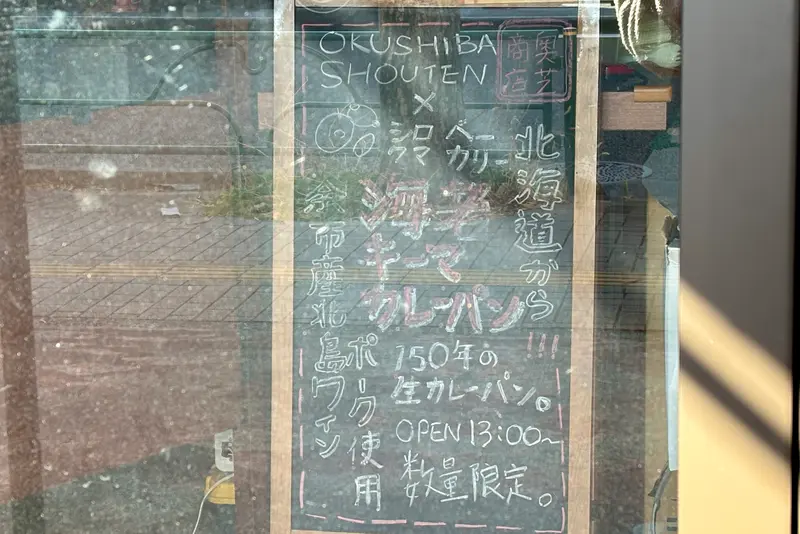 OKUSHIBA
SHOUTEN
奥芝
商店
×
シロクマ
ベーカリー
北海道から!!!
海老
キーマ
カレーパン
150年の
生カレーパン。
OPEN 13:00〜
数量限定。
余市産北島ワイン
ポーク使用